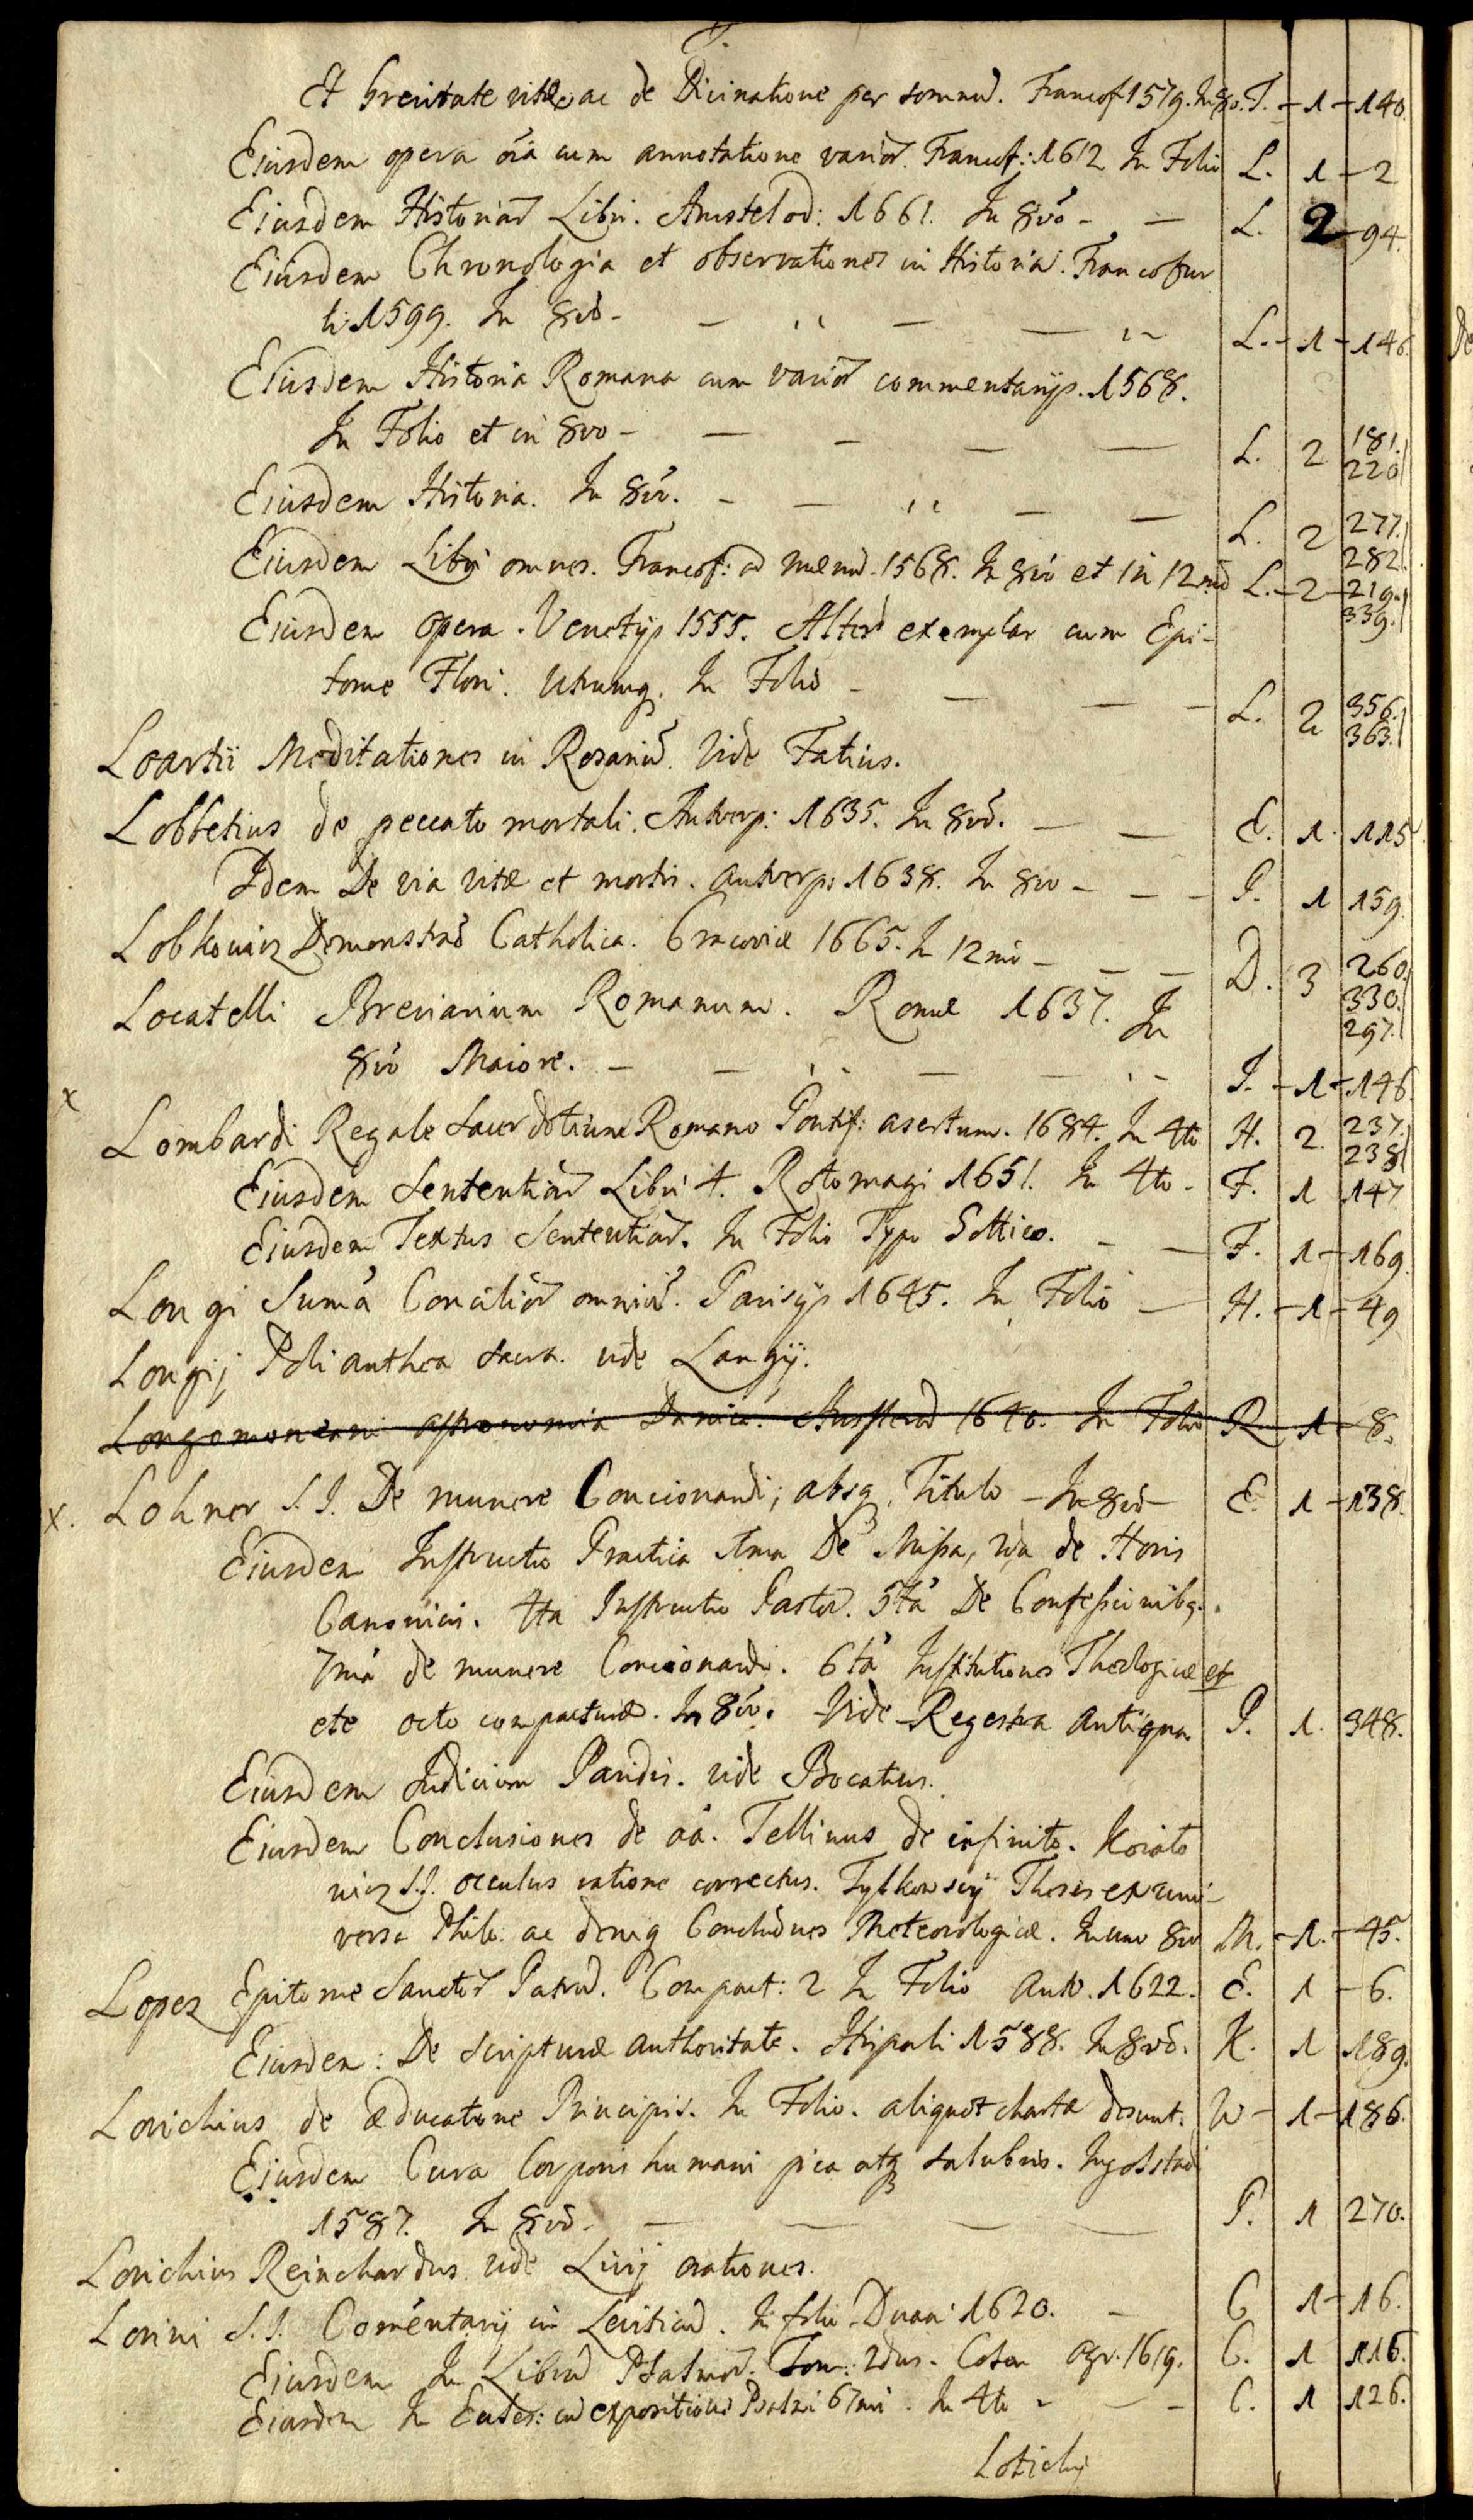 Et brevitate vitæ ac de Divinatione per somnū. Francof 1579. In 8o. T. - 1 - 140.
Eiusdem opera oĩa cum annotatione varior. Francof: 1612 In Folio L. 1 - 2
Eiusdem Historiar Libri. Amstelod: 1661. In 8vo - - L. 2 - 94.
Eiusdem Chronologia et observationes in Historiã. Francofur
ti 1599. In 8vo - L. - 1 - 146.
Eiusdem Historia Romana cum varior commentarijs. 1568.
In Folio et in 8vo - L. 2 181. 220
Eiusdem Historia. In 8vo. - L. 2 277. 282.
Eiusdem Libri omnes. Francof: ad mænū. 1568. In 8vo et in 12mo L. - 2 - 219. 339.
Eiusdem opera. Venetijs 1555. Alterū exemplar cum Epi-
tome Flori. Utrumq. In Folio - L. 2 356. 363.
Loartii Meditationes in Rosariū. Vide Fatius.
Lobbetius de peccato mortali. Antverp: 1635. In 8vo. - E. 1. 115
Idem De via vitæ et mortis. Antverp: 1638. In 8vo - - - I. 1 159.
Lobkowicz Demonstrãō Catholica. Cracoviæ 1665. In 12mo - - - D. 3 260. 330. 297.
Locatelli Breviarium Romanum. Romæ 1637. In
8vo Maiore. - I. - 1 - 146.
x Lombardi Regale Sacerdotium Romano Pontif: asertum. 1684. In 4to H. 2. 237. 238
Eiusdem Sententiar Libri 4. Rotomagi 1651. In 4to - F. 1 147
Eiusdem Textus Sententiar. In Folio Typo Gottico. - - F. 1 - 169.
Longi Sum̃a Concilior omniū. Parisijs 1645. In Folio - H. - 1 - 49
Longij Polianthea sacra. vide Langij.
Longomontani astronomia Danica. Amsterod 1640. In Folio R. 1 - 8.
x. Lohner S.J. De munere Concionandi; absq. Titulo - In 8vo - E. 1 - 138.
Eiusdem Instructio Practica 1ma De Missa, 2da de Horis
Canonicis. 4ta Instructio Pastor. 5ta De Confessionibq.
7ma de munere Concionandi. 6ta Institutiones Theologicæ et
etc octo compacturæ. In 8vo. Vide Regestra Antiqua. I. 1. 348.
Eiusdem Judicium Paridis. vide Bocatius.
Eiusdem Conclusiones de aã. Tellinus de infinito. Kociato
wicz S.J. occulus ratione correctus. Tylkowscij Theses ex uni-
versa Philo. ac deniq Conclusiones Meteorologicæ. In uno 8vo M. - 1. - 45.
Lopez Epitome Sanctor Patrū. Compact: 2 In Folio Antv. 1622. E. 1 - 6.
Eiusdem: De Scripturæ authoritate. Hispali 1588. In 8vo. K. 1 189.
Lorichius de æducatione Principis. In Folio. aliquot chartæ desunt. W - 1 - 186.
Eiusdem Cura Corporis humani pia atq salubris. Ingolstadi
1587. In 8vo - P. 1 270.
Lorichius Reinchardus vide Livij orationes.
Lorini S.J. Com̃entarij in Leviticū. In folio Duaci 1620. - C 1 - 16.
Eiusdem In Librū Psalmor. Tom: 2dus. Colon Agr. 1619. C. 1 116.
Eiusdem In Eccles: cū expositione Psalmi 67mi. In 4to - C. 1 126.
Lotichij